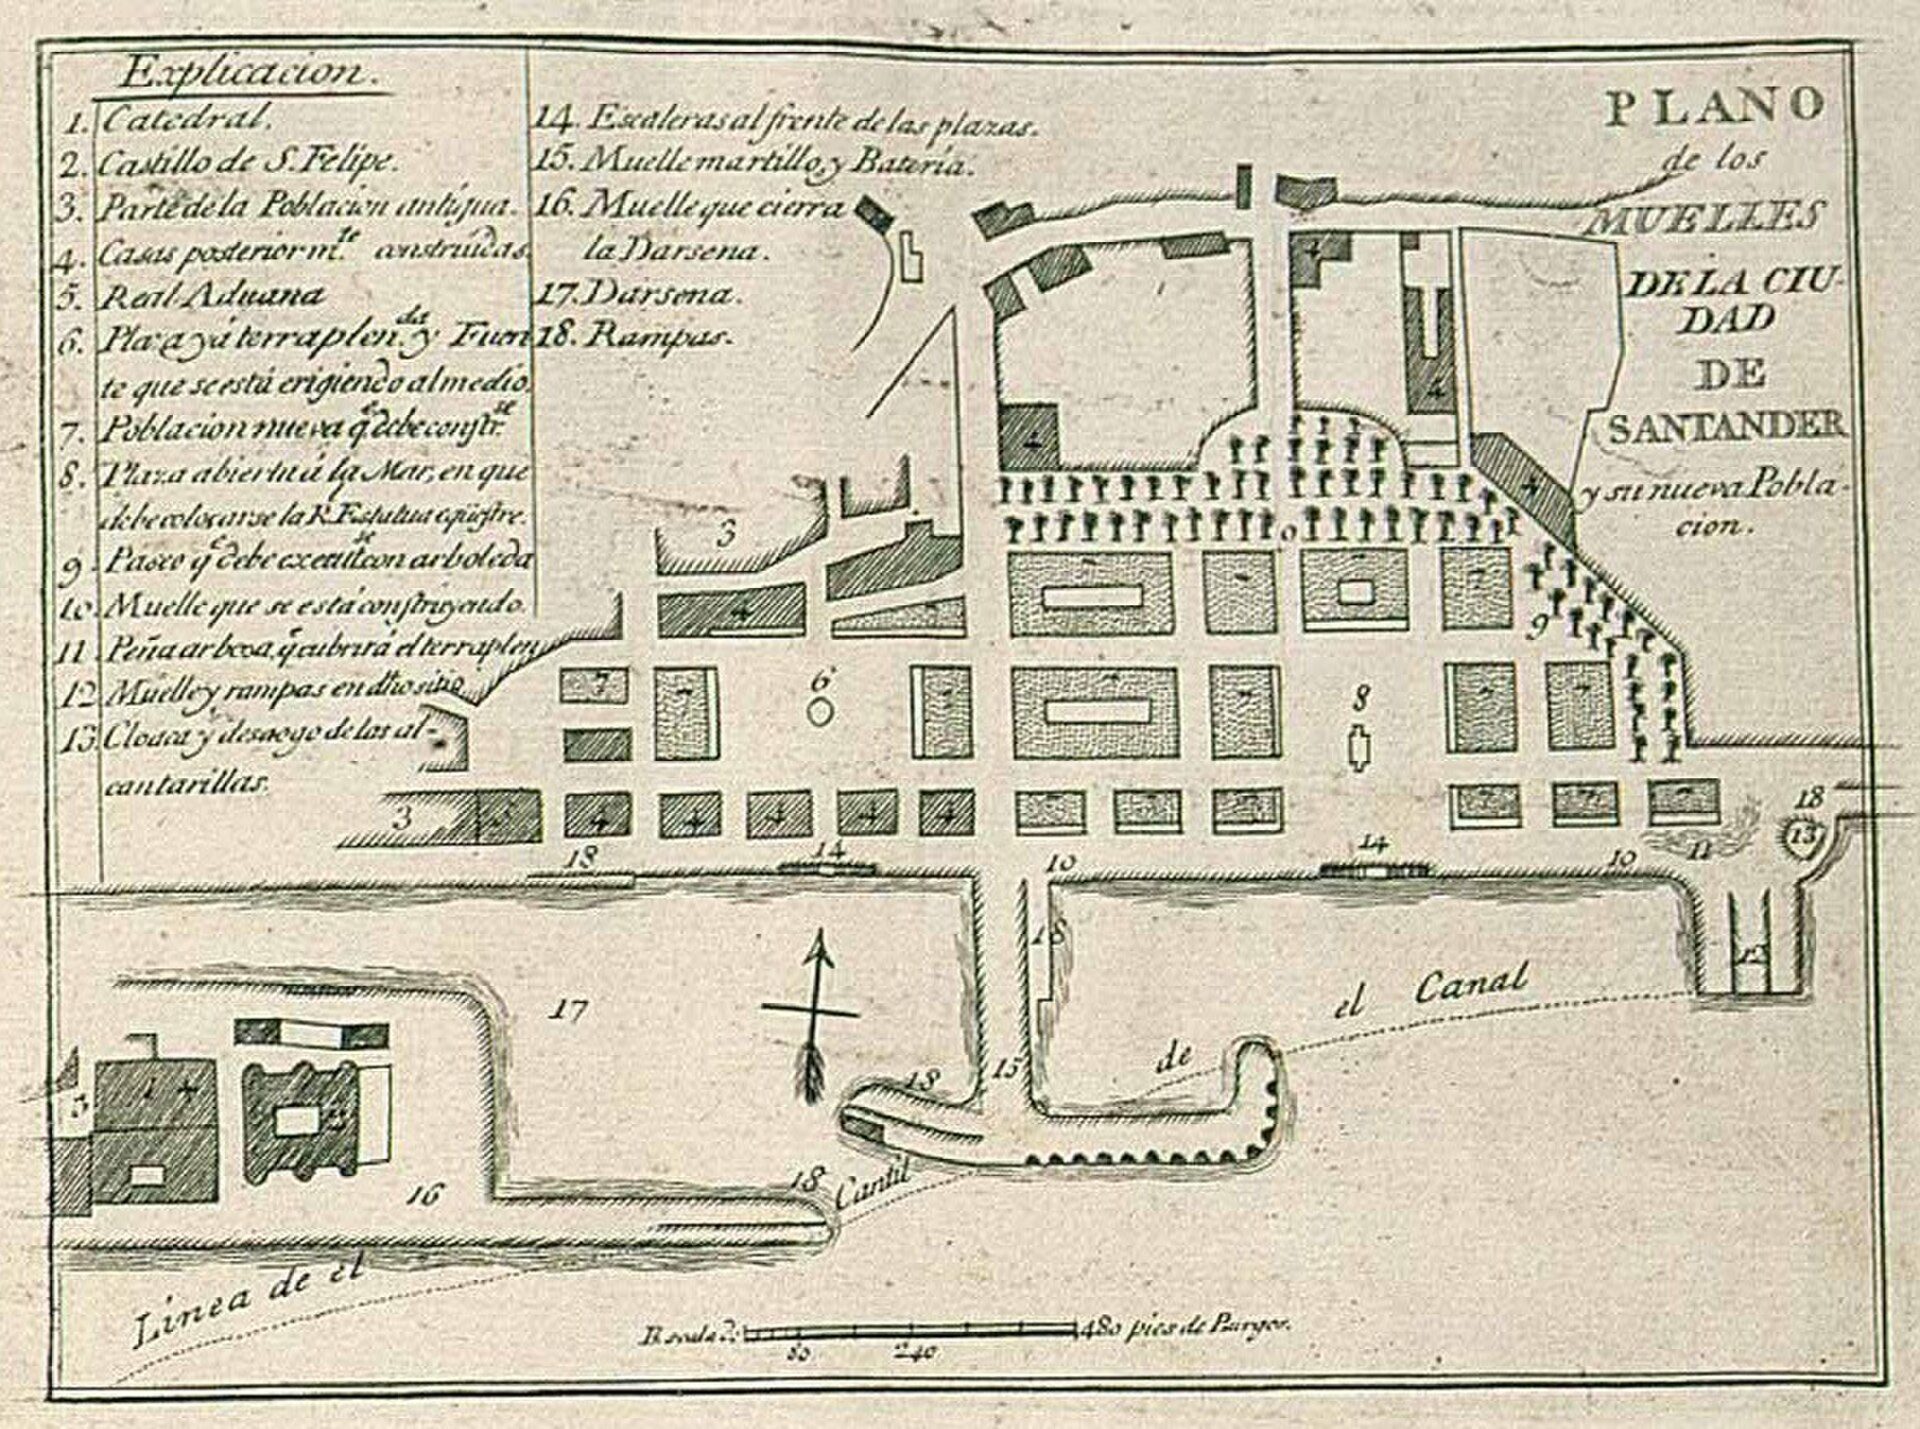 Explicacion.
1. Catedral.
2. Castillo de S. Felipe.
3. Parte de la Poblacion antigua.
4. Casas posteriorm.te construidas.
5. Real Aduana
6. Plaza yá terraplen.da y Fuen
te que se está erigiendo al medio.
7. Poblacion nueva q.e debe constr.se
8. Plaza abierta á la Mar, en que
debe colocarse la R. Estatua eqüestre.
9. Paseo q.e debe execut.se con arboleda
10. Muelle que se está construyendo.
11. Peña q.e cubrirá el terraplen
12. Muelle y rampas en dho sitio.
13. Cloaca y desaogo de las al-
cantarillas.
14. Escaleras al frente de las plazas.
15. Muelle martillo, y Batería.
16. Muelle que cierra
la Darsena.
17. Darsena.
18. Rampas.
PLANO
de los
MUELLES
DE LA CIU-
DAD
DE
SANTANDER
y su nueva Pobla-
cion.
4
4
4
4
3
9
4
7
7
7
9
7
6
7
8
7
3
5
4
4
4
4
4
7
7
7
18
13
11
18
14
10
14
10
18
17
15
18
12
1
3
2
16
18
Linea de el Cantil de el Canal
Escala de 480 pies de Burgos.
80 240